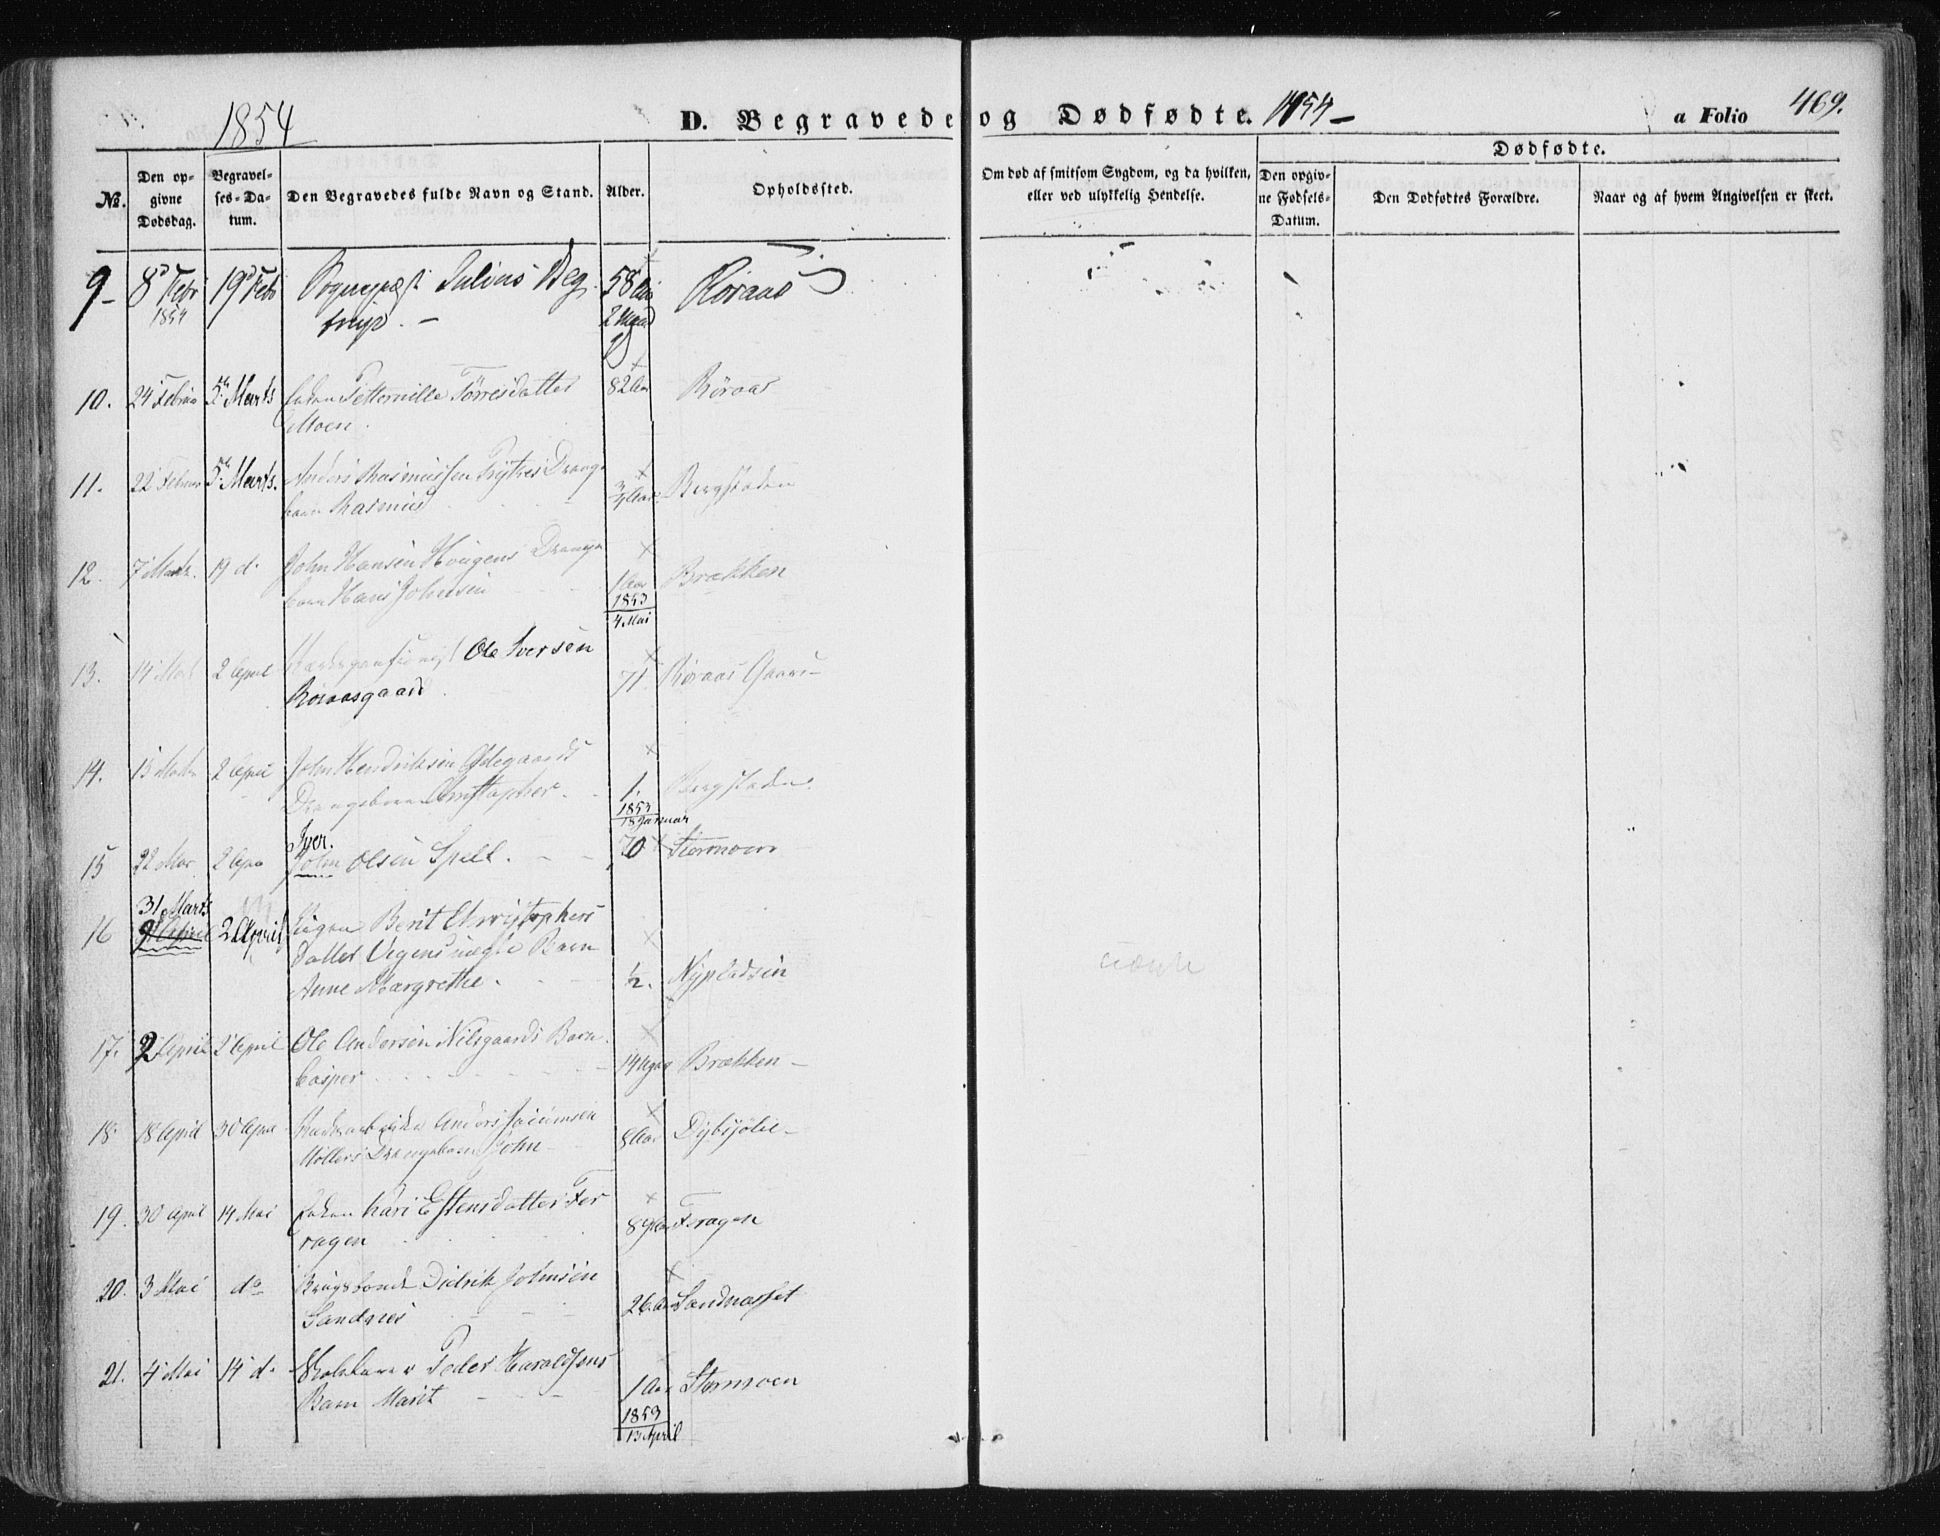 1854
D. Begravede og Dødfødte. 1854 –
a Folio 469.
No.
Den opgivne Dødsdag.
Begravelses-Datum.
Den Begravedes fulde Navn og Stand.
Alder.
Opholdssted.
Om død af smitsom Sygdom, og da hvilken, eller ved ulykkelig Hendelse.
Dødfødte.
Den opgivne Fødsels-Datum.
Den Dødfødtes Forældre.
Naar og af hvem Angivelsen er skeet.
9 – 8d Febr 1854 19d Febr Sognepræst Julius Beg 58 Aar Röraas
trup. –
10. 24 Februar 5te Marts Petternille Törresdatter 82 Aar Röraas
Moen.
11. 22 Februar 5te Marts. Anders Rasmussen Drenge Bergstaden
barn Rasmus
12. 7 Marts 19 d. John Hansen Hougens Drenge 1 Aar Brækken
barn Hans Johnsen
1853
4 Mai
13. 14 Marts 2 April Ole Iversen 71 Röraas Gaard –
Röraasgaard
14. 15 Marts 2 April John Hendriksen Ødegaards 1. Bergstaden
Drengebarn Christopher.
1853
18 Januar
Iver.
15 22 Mar 2 Apr John Olsen Spell. 70 Stormoen
31 Marts
16 2 April 2 April Pigen Berit Christophers
datter Uegensuægte Barn
Anne Margrethe. 1/2. Nypladsen
uægte
17. 2 April 2 April Ole Andersen Nilsgaards Barn
Casper 14 Brækken –
18 18 April 30 Apr Anders
Möllers Drengebarn John 8 Aar Dybsjölie –
19. 30 April 14 Mai Enken Kari Estensdatter Fe 89 Aar Feragen
ragen
20. 3 Mai do Didrik Johnsen
Sandnes 26 Aar Sandnæsset
21. 4 Mai 14 d. Peder Haraldsens
Barn Marit 1 Aar Stormoen
1853
13 April